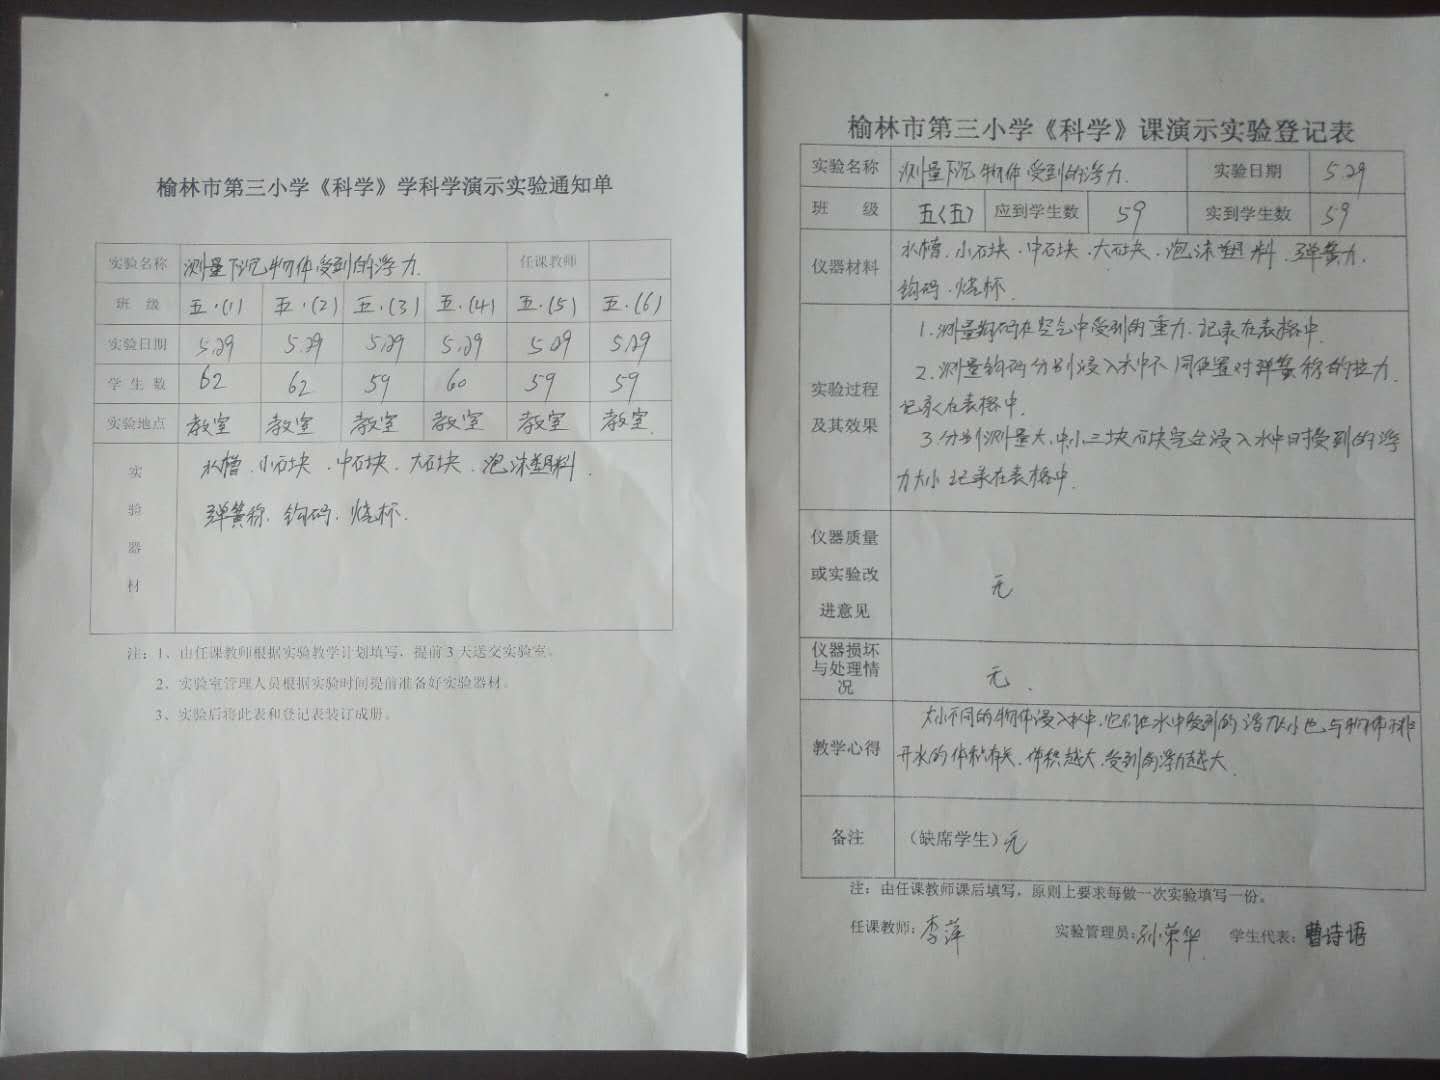 榆林市第三小学《科学》学科学演示实验通知单
实验名称 测量下沉物体受到的浮力. 任课教师
班 级 五.(1) 五.(2) 五.(3) 五.(4) 五.(5) 五.(6)
实验日期 5.29 5.29 5.29 5.29 5.29 5.29
学 生 数 62 62 59 60 59 59
实验地点 教室 教室 教室 教室 教室 教室.
实验器材 水槽.小石块.中石块.大石块.泡沫塑料.
弹簧称.钩码.烧杯.
注：1、由任课教师根据实验教学计划填写，提前3天送交实验室。
2、实验室管理人员根据实验时间提前准备好实验器材。
3、实验后将此表和登记表装订成册。
榆林市第三小学《科学》课演示实验登记表
实验名称 测量下沉物体受到的浮力. 实验日期 5.29
班 级 五〈五〉 应到学生数 59 实到学生数 59
仪器材料 水槽.小石块.中石块.大石块.泡沫塑料.弹簧力.
钩码.烧杯.
实验过程及其效果 1.测量钩码在空气中受到的重力.记录在表格中.
2.测量钩码分别浸入水中不同位置对弹簧称的拉力.
记录在表格中.
3.分别测量大.中.小三块石块完全浸入水中时受到的浮
力大小记录在表格中.
仪器质量
或实验改
进意见 无
仪器损坏
与处理情
况 无.
教学心得 大小不同的物体浸入水中.它们在水中受到的浮力大小也与物体排
开水的体积有关.体积越大.受到的浮力越大.
备注 （缺席学生）无
注：由任课教师课后填写，原则上要求每做一次实验填写一份。
任课教师：李萍 实验管理员：孙荣华 学生代表：曹诗语